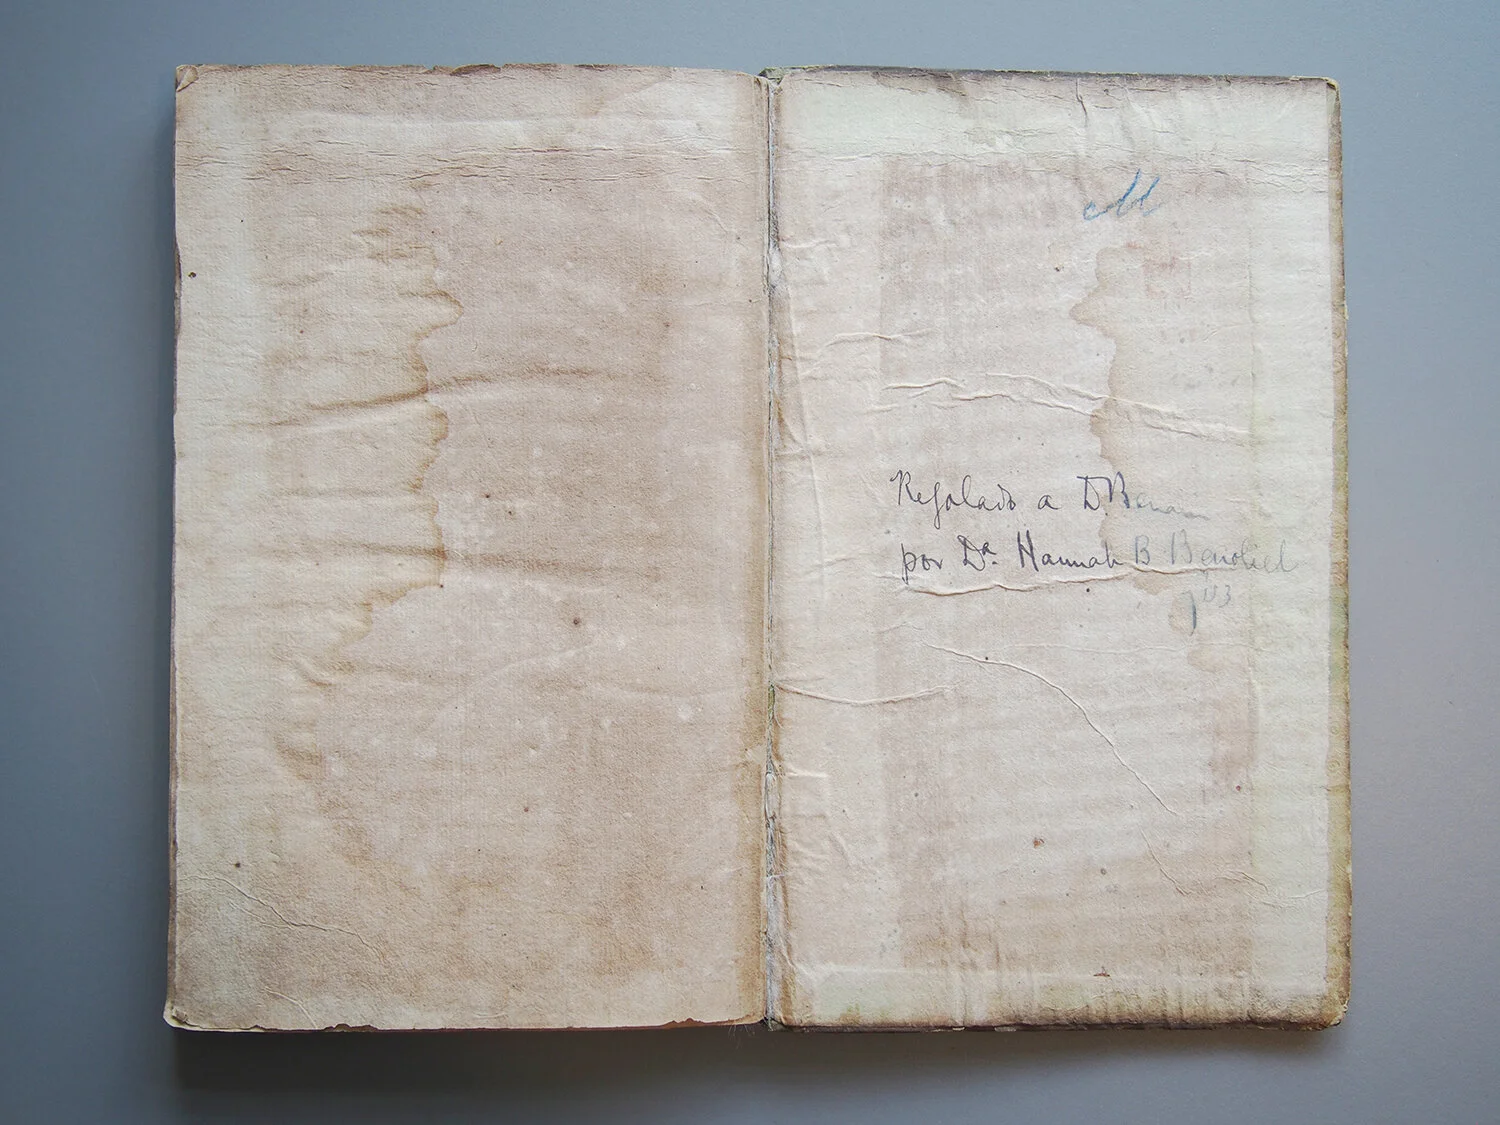 Regalado a D. Benam
por Dª. Hannah B Benoliel